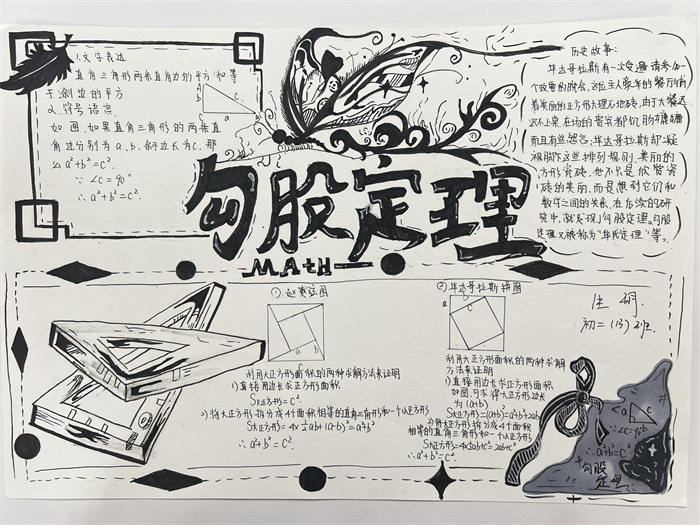 1.文字表达
直角三角形两条直角边的平方和等
于斜边的平方
2.符号语言
如图,如果直角三角形的两条直
角边分别为a、b,斜边长为c,那
么a²+b²=c².
∵∠c=90°
∴a²+b²=c²
A
b
C
a
勾股定理
MAtH
历史故事:
毕达哥拉斯有一次应邀请参加一
个政要的晚会,这位主人豪华的餐厅铺
着美丽的正方形大理石地砖,由于大餐迟
迟不上桌,
而且有些怨言,毕达哥拉斯却凝
视脚下这些排列规则、美丽的
方形瓷砖,他不只是欣赏瓷
砖的美丽,而是想到它们和
数字之间的关系,在后续的研
究中,就发现了勾股定理。勾股
定理又被称为“毕氏定理”等。
①赵爽弦图
a b
利用大正方形面积的两种求解方法来证明
1)直接用边长求正方形面积
S大正方形=c².
2)将大正方形拆分成4个面积相等的直角三角形和一个小正方形
S大正方形=4x½ab+(a-b)²=a²+b²
∴a²+b²=c².
②毕达哥拉斯拼图
b
a
c
利用大正方形面积的两种求解
方法来证明
1)直接用边长求正方形面积
如图,可求得大正方形边长
为(a+b)
S大正方形=(a+b)²=a²+b²+2ab
2)将大正方形拆分成4个面积
相等的直角三角形和一个小正方形
S大正方形=4x½ab+c²=2ab+c²
∴a²+b²=c².
初二(13)班
a c
b
∵∠c=90°
∴a²+b²=c²
勾股
定理